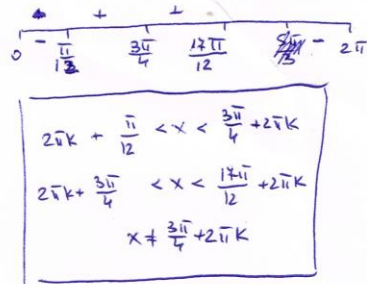 + +
0 - π/12 3π/4 17π/12 - 2π
2πk + π/12 < x < 3π/4 + 2πk
2πk + 3π/4 < x < 17π/12 + 2πk
x ≠ 3π/4 + 2πk